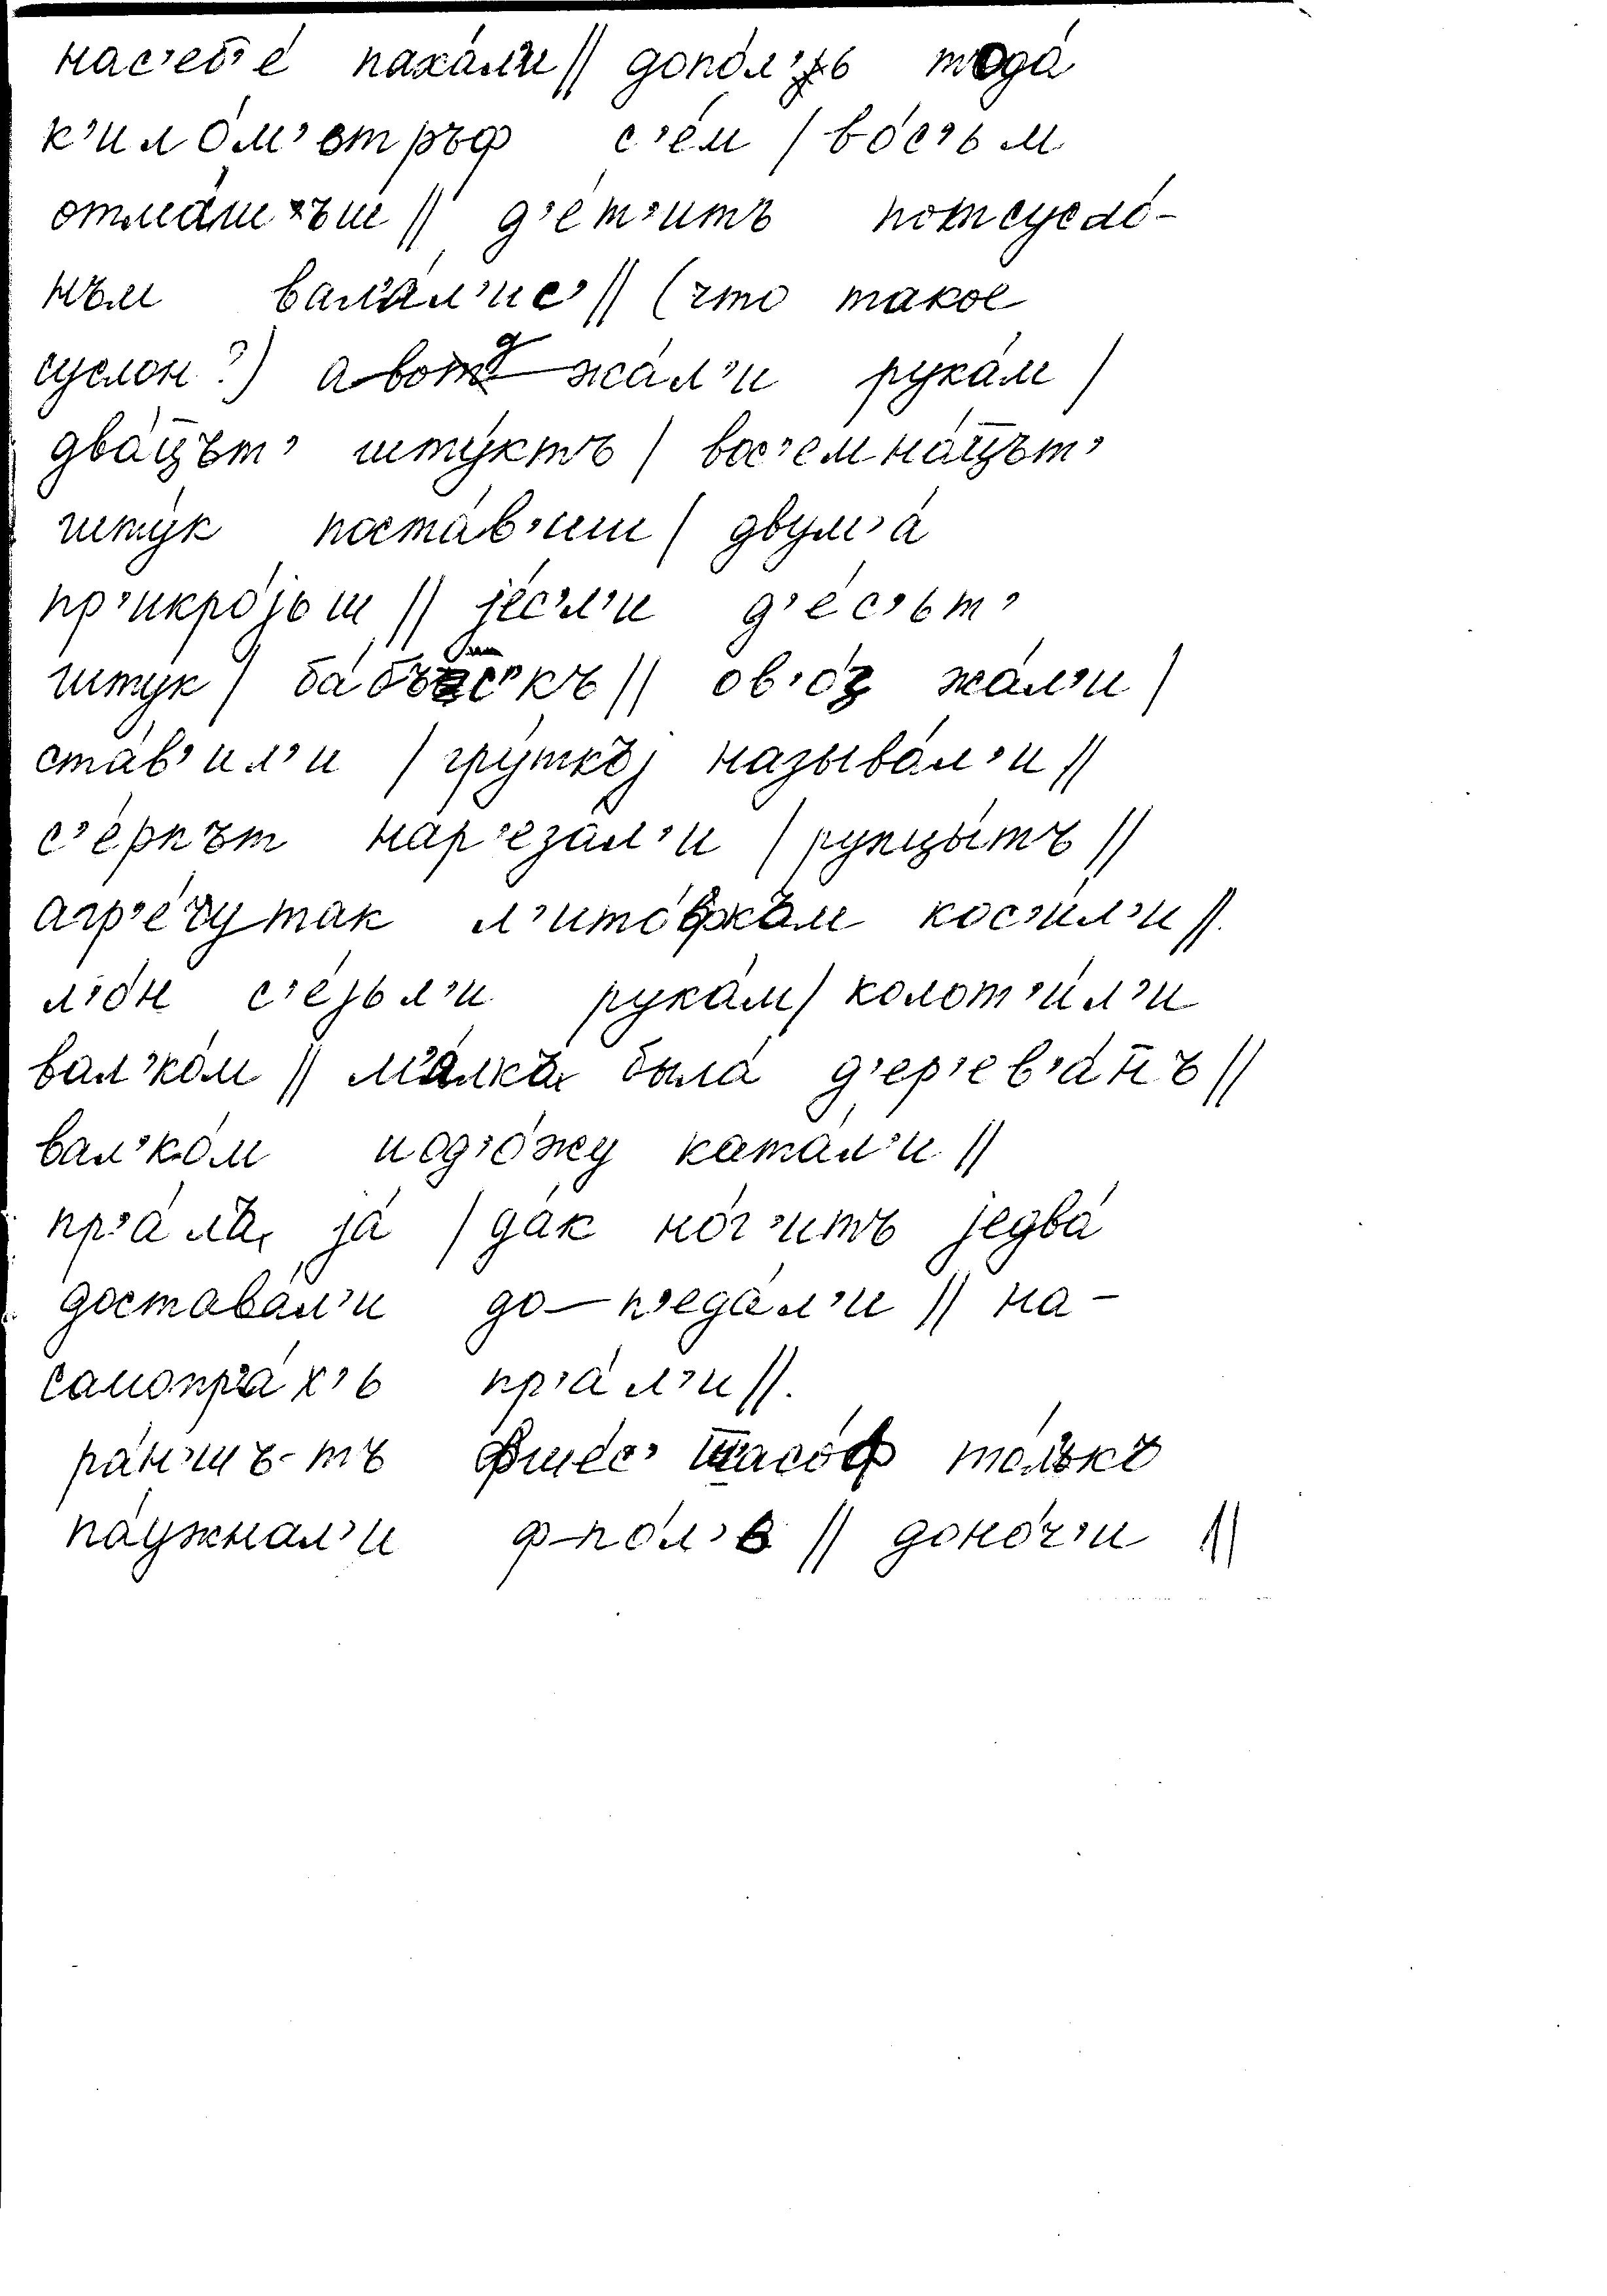 нас'еб'е́ паха́л'и // допо́л'ь тода́
к'ило́м'етръф с'е́м / во́с'ьм
отма́шъш // д'е́т'итъ потсусло́-
нъм вал'а́л'ис' // (что такое
суслон?) а вод жа́л'и рука́м /
два́ц̅ът' шту́ктъ / вос'емна́ц̅ът'
шту́к поста́в'иш / двум'а́
пр'икро́јьш // је́с'л'и д'е́с'ьт'
шту́к / ба́бъшкъ // ов'о́з жа́л'и /
ста́в'ил'и / гру́ткъј называ́л'и //
с'е́рпът нар'еза́л'и / рупцы́тъ //
агр'е́чу так л'ито́фкъм кос'и́л'и //.
л'о́н с'е́јьл'и рука́м / колот'и́л'и
вал'ко́м // м'а́лкъ была́ д'ер'ев'а́н̅ъ //
вал'ко́м и од'о́жу ката́л'и //
пр'а́лъ ја́ / да́к но́г'итъ једва́
достава́л'и до-п'еда́л'и // на-
самопр'а́х'ь пр'а́л'и //.
ра́н'шъ-тъ фше́с' ш̅асо́ф то́л'къ
па́ужнал'и ф-по́л'ь // доно́ч'и //